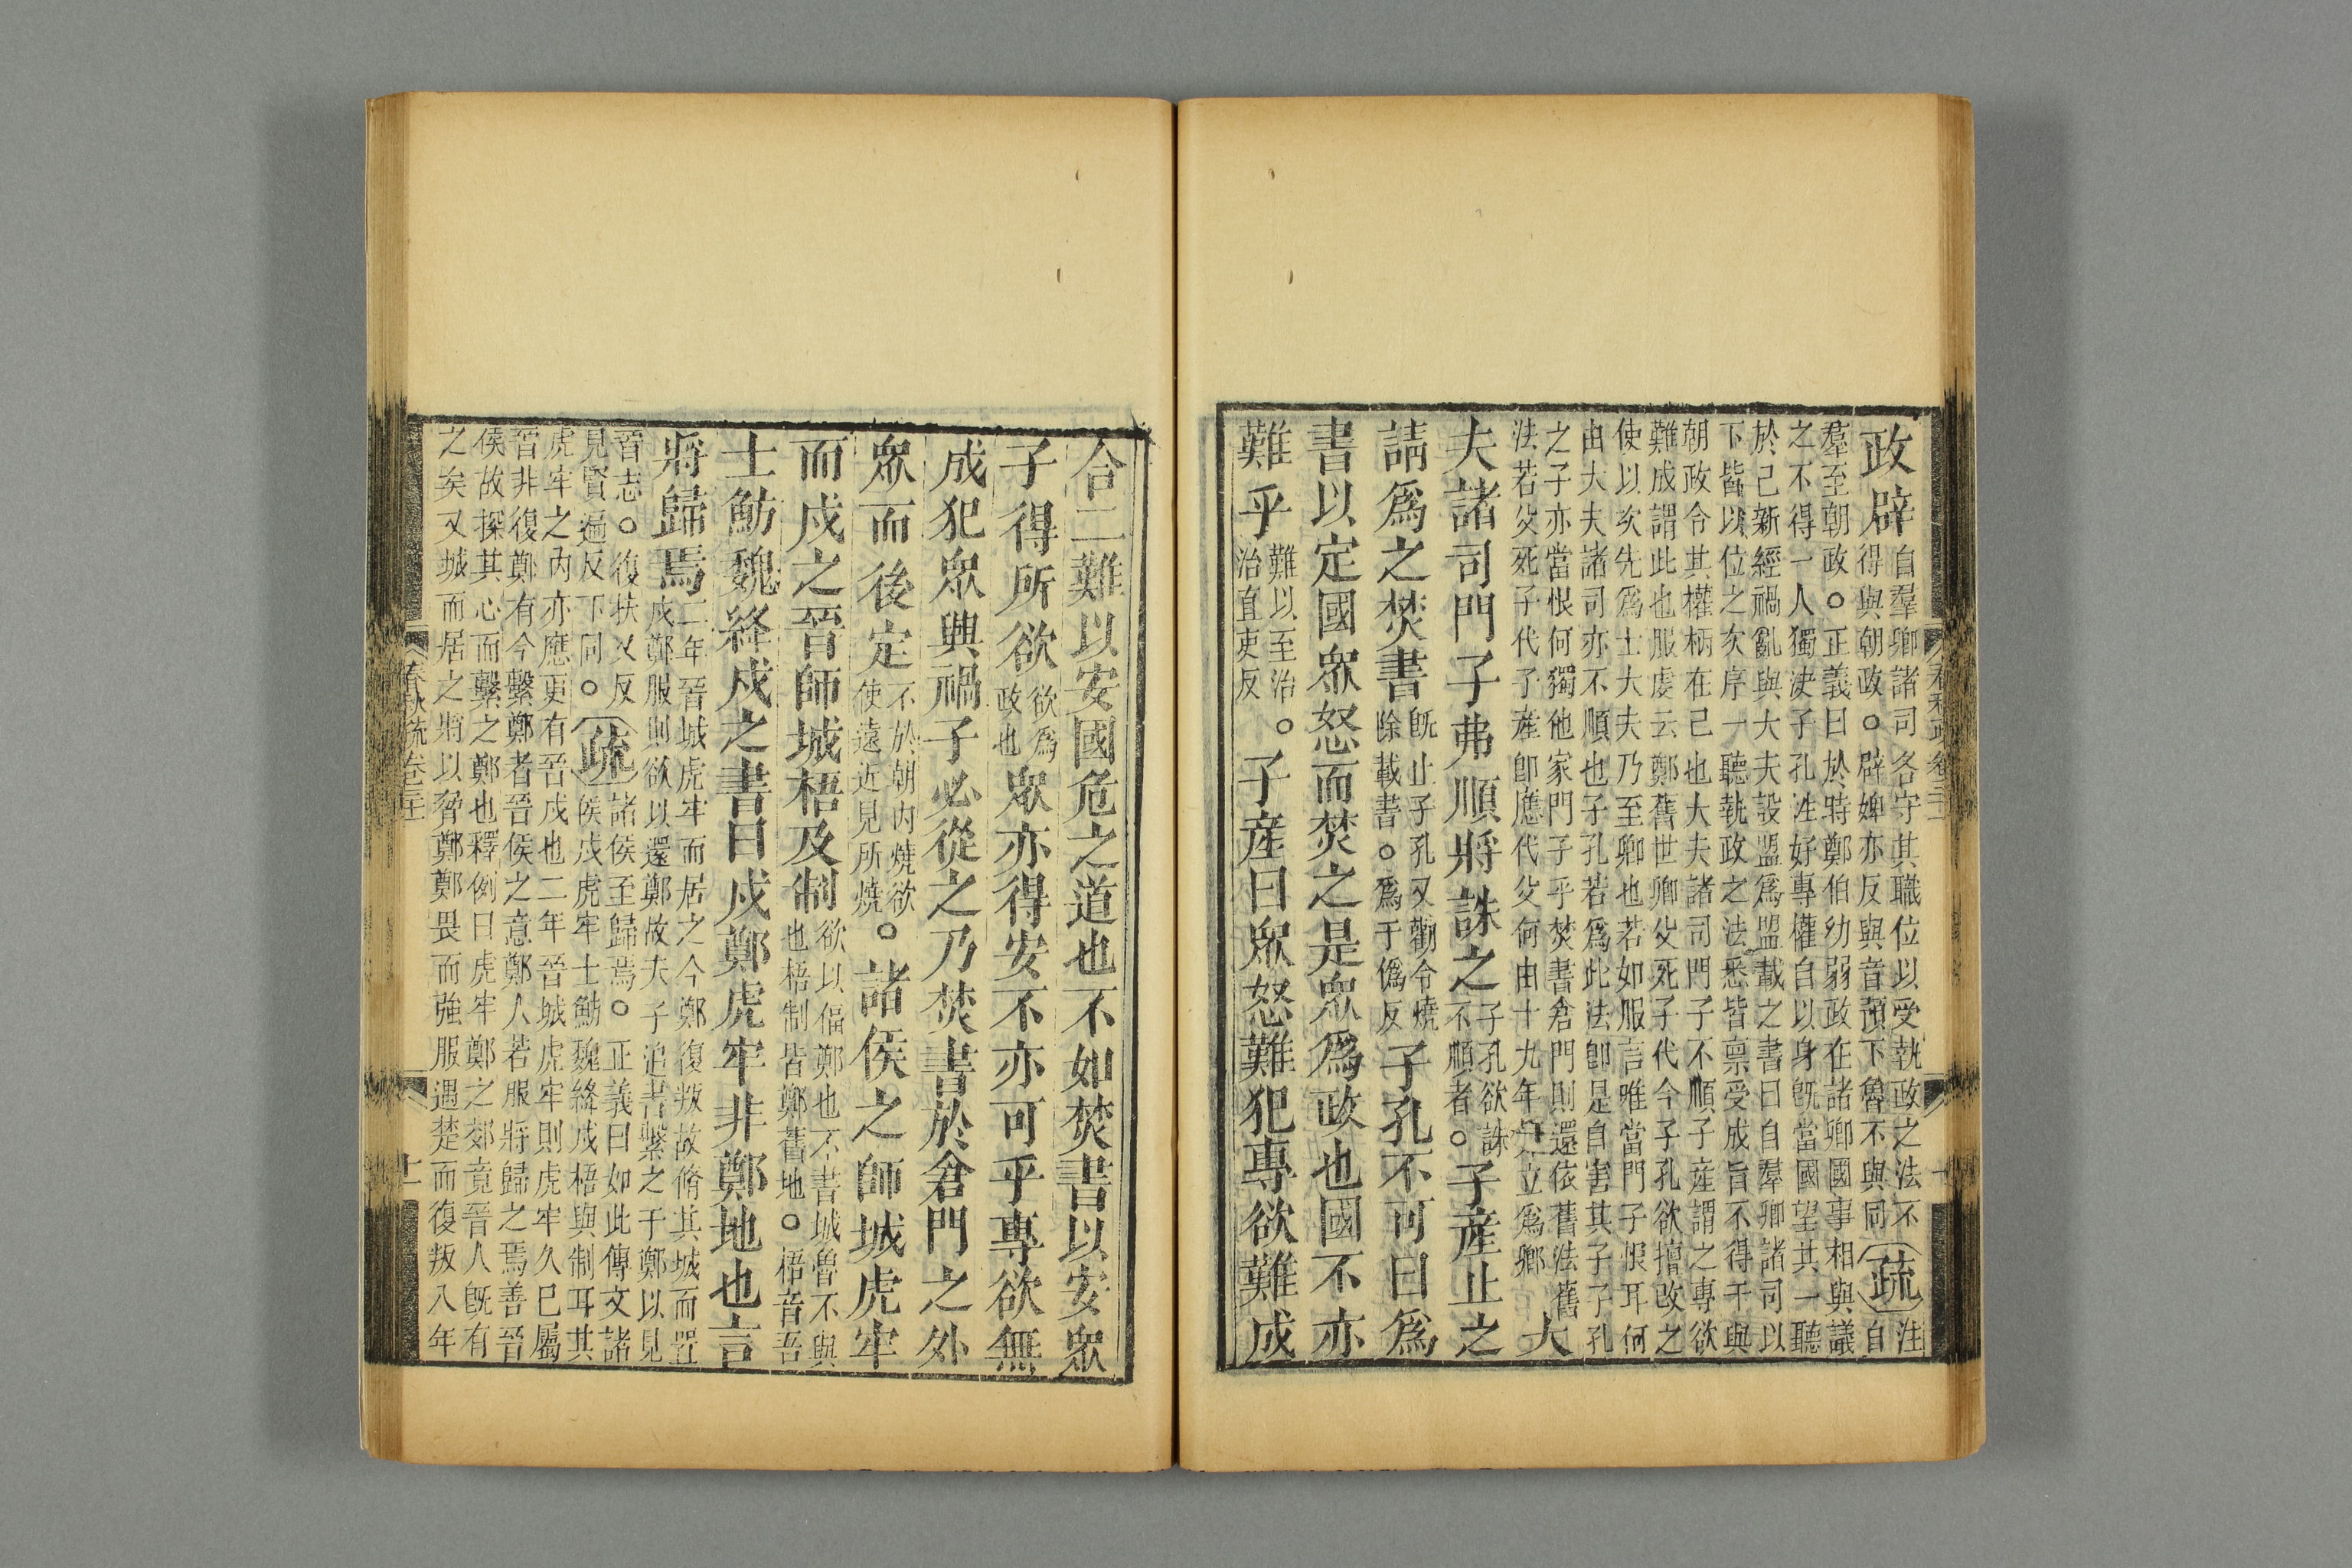 政辟自羣卿諸司各守其職位以受執政之法不得與朝政。辟婢亦反與音預下魯不與同疏注自
羣至朝政。正義曰於時鄭伯幼弱政在諸卿國事相與議
之不得一人獨決子孔性好專權自以身旣當國望其一聽
於己新經禍亂與大夫設盟爲盟載之書曰自羣卿諸司以
下皆以位之次序一聽執政之法悉皆稟受成旨不得干與
朝政令其權柄在己也大夫諸司門子不順子產謂之專欲
難成謂此也服虔云鄭舊世卿父死子代今子孔欲擅改之
使以次先爲士大夫乃至卿也若如服言唯當門子恨耳何
由大夫諸司亦不順也子孔若爲此法卽是自害其子子孔
之子亦當恨何獨他家門子乎焚書倉門則還依舊法舊
法若父死子代子產卽應代父何由十九年立爲卿。大
夫諸司門子弗順將誅之子孔欲誅不順者。子產止之
請爲之焚書旣止子孔又勸令燒除載書。爲于僞反子孔不可曰爲
書以定國眾怒而焚之是眾爲政也國不亦
難乎難以至治治直吏反。子產曰眾怒難犯專欲難成
合二難以安國危之道也不如焚書以安眾
子得所欲欲爲政也眾亦得安不亦可乎專欲無
成犯眾興禍子必從之乃焚書於倉門之外
眾而後定不於朝內燒欲使遠近見所燒。諸侯之師城虎牢
而戍之晉師城梧及制欲以偪鄭也不書城魯不與也梧制皆鄭舊地。梧音吾
士魴魏絳戍之書曰戍鄭虎牢非鄭地也言
將歸焉二年晉城虎牢而居之今鄭復叛故脩其城而置戍鄭服則欲以還鄭故夫子追書繫之于鄭以見
晉志。復扶又反見賢遍反下同。疏諸侯至歸焉。正義曰如此傳文諸侯戍虎牢士魴魏絳戍梧與制耳其
虎牢之內亦應更有晉戍也二年晉城虎牢則虎牢久已屬
晉非復鄭有今繫鄭者晉侯之意鄭人若服將歸之焉善晉
侯故探其心而繫之鄭也釋例曰虎牢鄭之郊竟晉人旣有
之矣又城而居之將以脅鄭鄭畏而強服遇楚而復叛八年
春秋疏卷三十一
十一